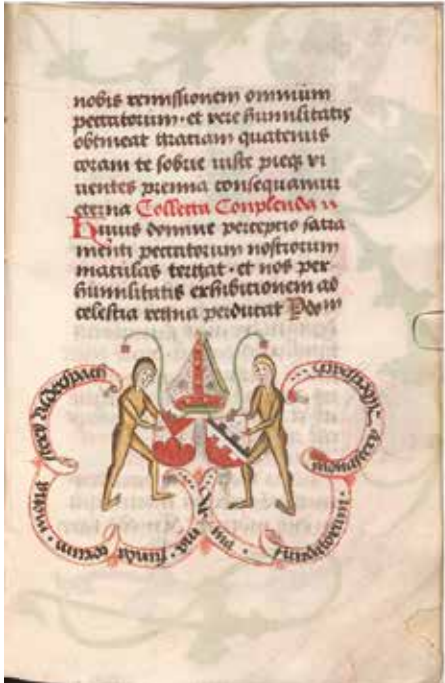 nobis remissionem omnium
peccatorum · et vere humilitatis
obtineat gratiam quatenus
coram te sobrie iuste pieq; vi
uentes premia consequamur
eterna Collecta Conplenda
Huius domine perceptio sacra
menti peccatorum nostrorum
maculas tergat · et nos per
humilitatis exhibitionem ad
celestia regna perducat
fundatorum · monasterij